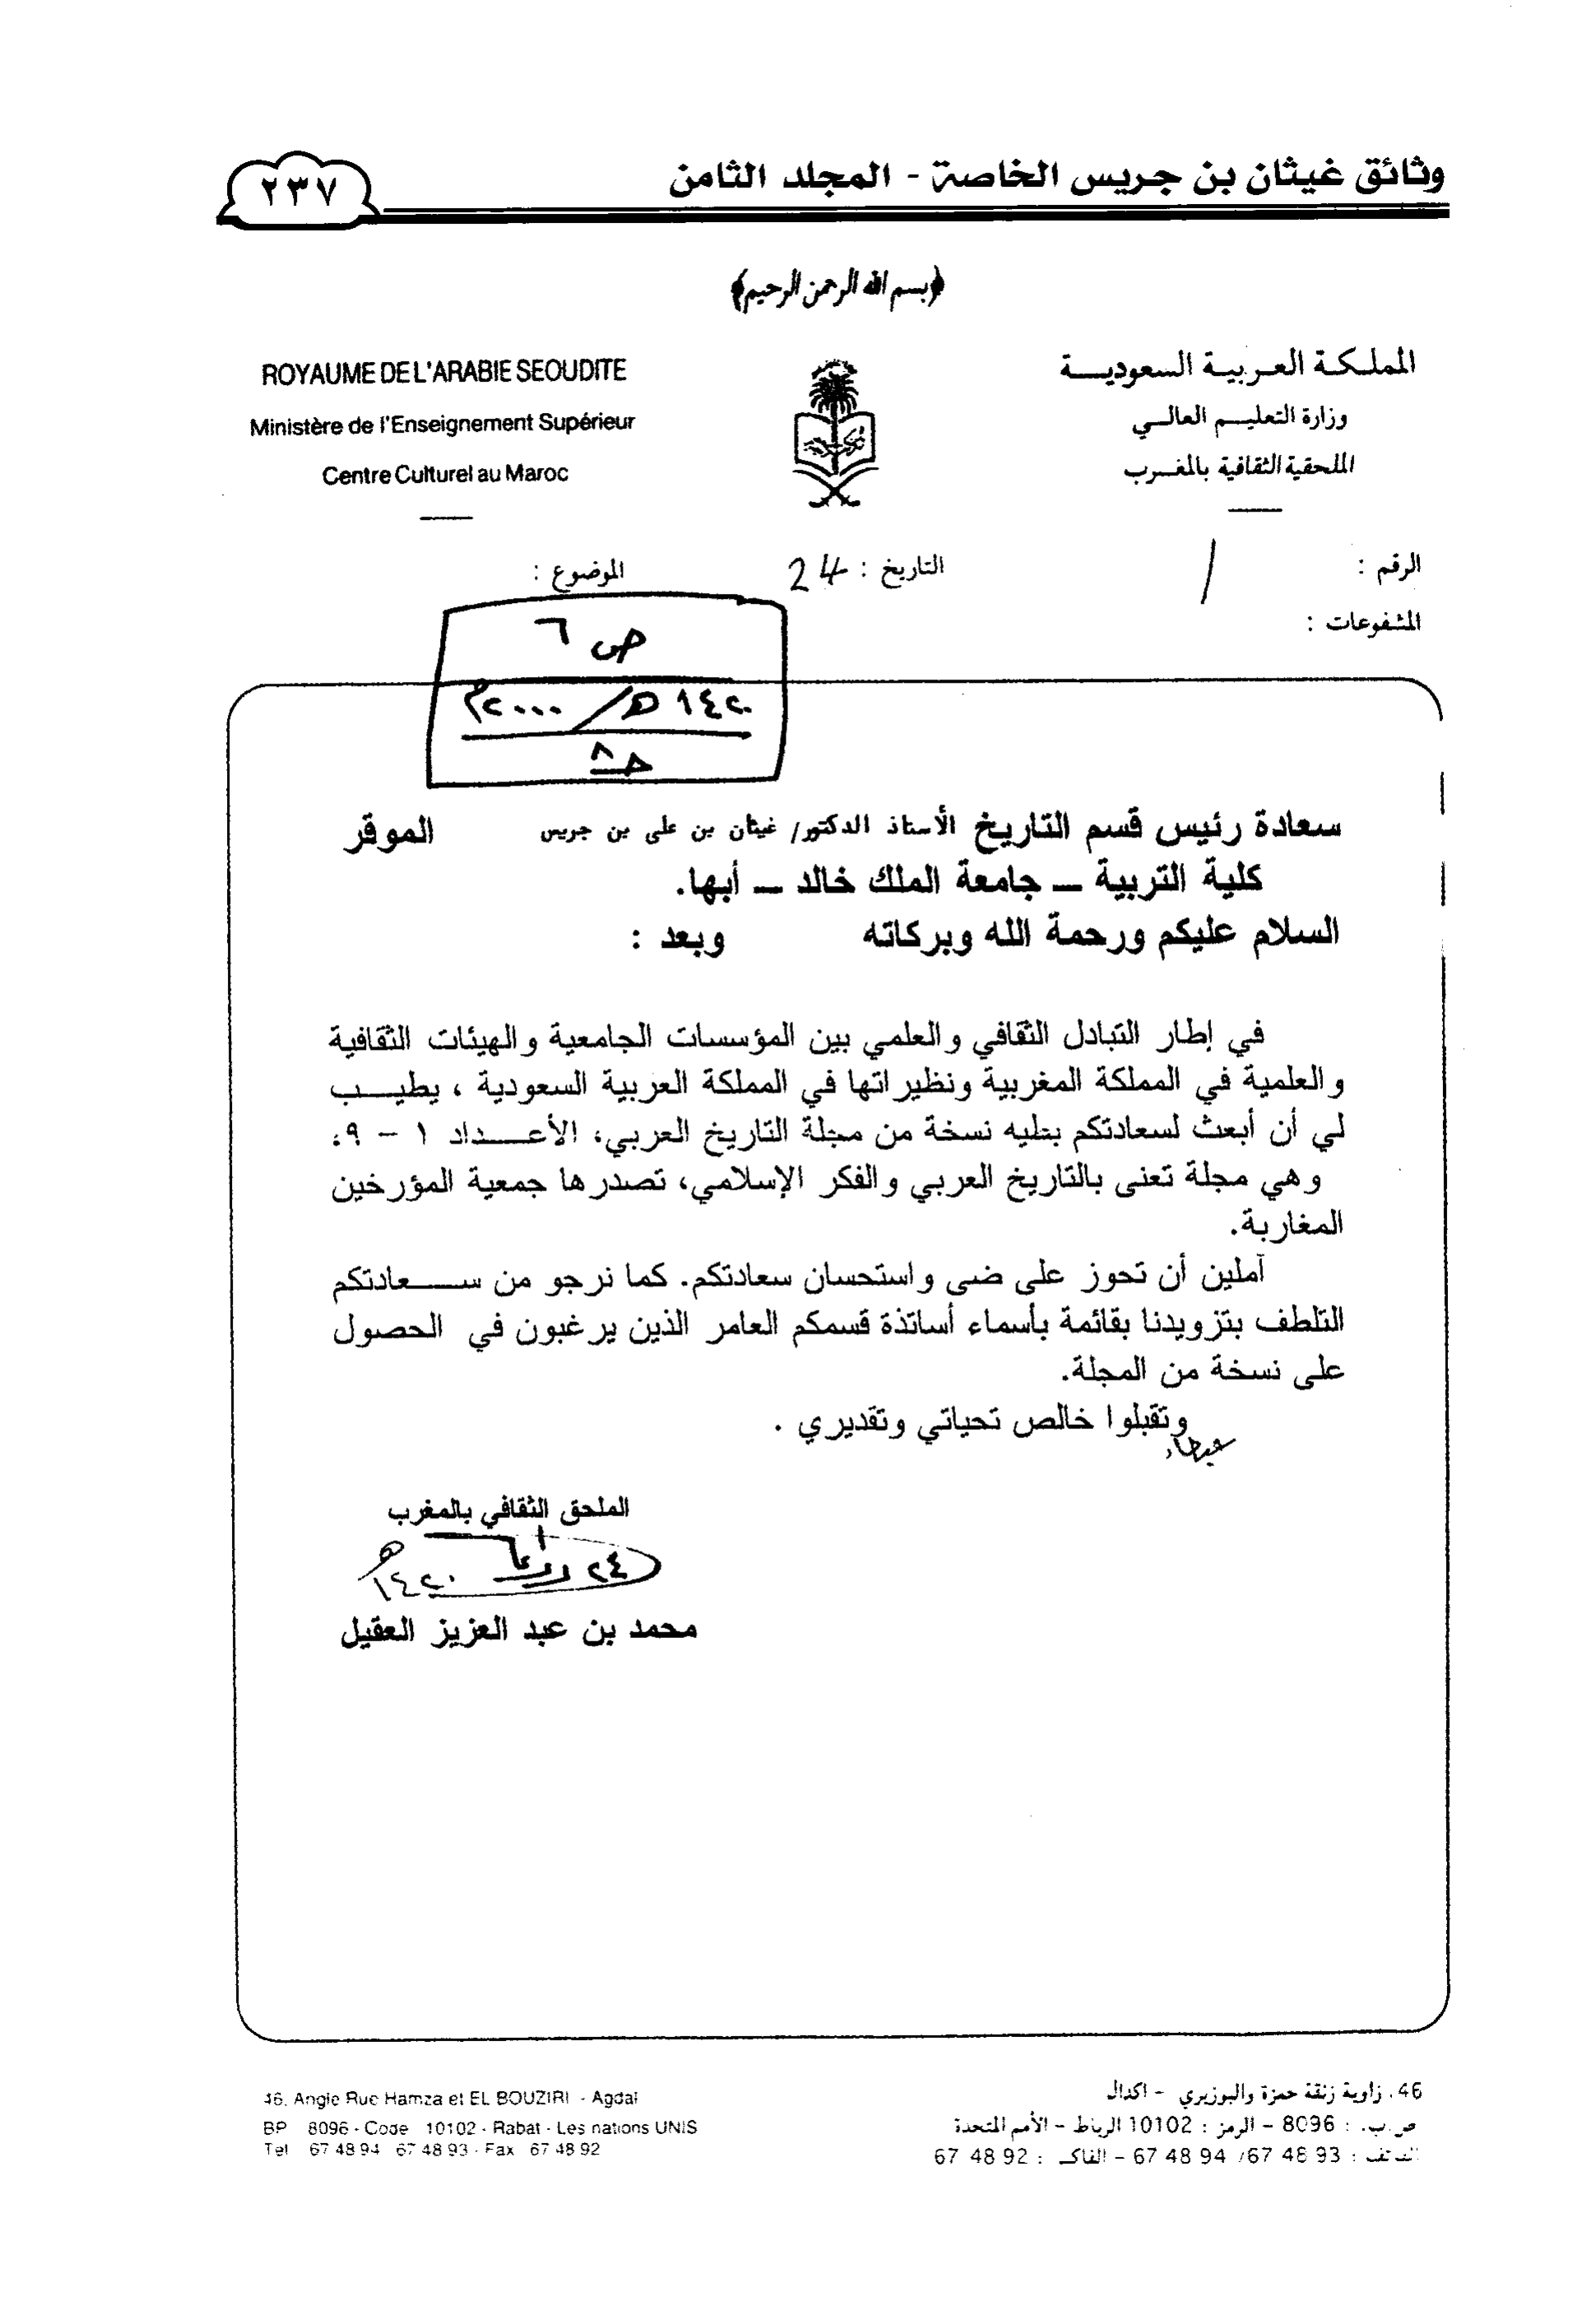 وثائق غيثان بن جريس الخاصة - المجلد الثامن
٢٣٧
﴿بسم الله الرحمن الرحيم﴾
المملكة العربية السعودية
وزارة التعليم العالي
الملحقية الثقافية بالمغرب
ROYAUME DE L'ARABIE SEOUDITE
Ministère de l'Enseignement Supérieur
Centre Culturel au Maroc
الرقم : /
التاريخ : 24
الموضوع :
المشفوعات :
ص ٦
١٤٢٠هـ / ٢٠٠٠م
ح٨
سعادة رئيس قسم التاريخ الأستاذ الدكتور/ غيثان بن على بن جريس الموقر
كلية التربية – جامعة الملك خالد – أبها.
السلام عليكم ورحمة الله وبركاته وبعد :
في إطار التبادل الثقافي والعلمي بين المؤسسات الجامعية والهيئات الثقافية
والعلمية في المملكة المغربية ونظيراتها في المملكة العربية السعودية ، يطيب
لي أن أبعث لسعادتكم بطيه نسخة من مجلة التاريخ العربي، الأعداد ١ – ٩،
وهي مجلة تعنى بالتاريخ العربي والفكر الإسلامي، تصدرها جمعية المؤرخين
المغاربة.
آملين أن تحوز على ضى واستحسان سعادتكم. كما نرجو من سعادتكم
التلطف بتزويدنا بقائمة بأسماء أساتذة قسمكم العامر الذين يرغبون في الحصول
على نسخة من المجلة.
وتقبلوا خالص تحياتي وتقديري .
الملحق الثقافي بالمغرب
١٤٢٠هـ
محمد بن عبد العزيز العقيل
46، زاوية زنقة حمزة والبوزيري - اكدال
ص.ب. : 8096 – الرمز : 10102 الرباط – الأمم المتحدة
الهاتف : 93 48 67/ 94 48 67 – الفاكـ : 92 48 67
46, Angle Rue Hamza et EL BOUZIRI - Agdal
BP 8096 - Code 10102 - Rabat - Les nations UNIS
Tel 67 48 94 67 48 93 - Fax 67 48 92